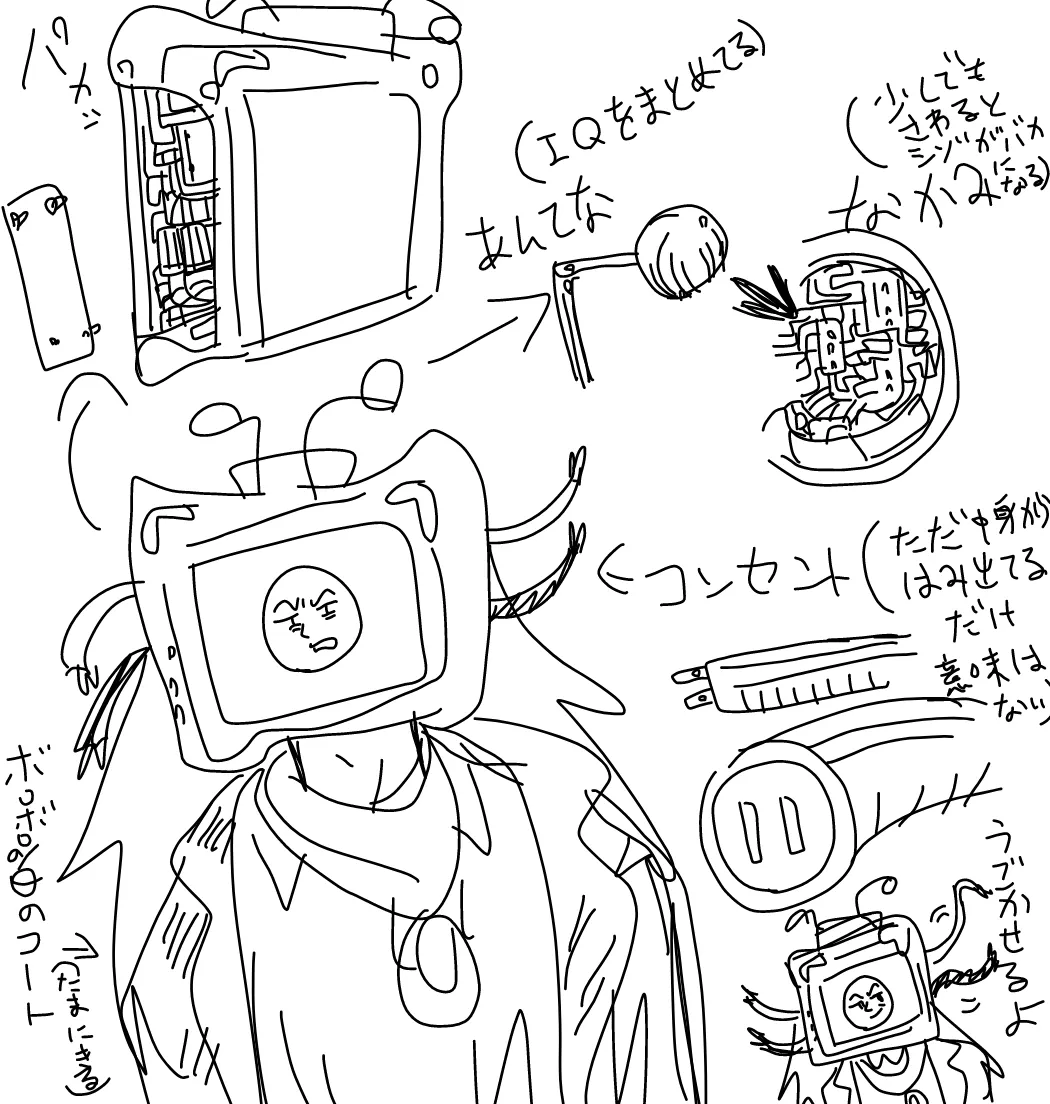 パカッ
(IQをまとめてる)
あんてな
(少しでも
さわると
ミゾがバカ
になる)
なかみ
←コンセント
(ただ中身が
はみ出てる
だけ
意味は
ない)
うごかせるよ
ボロボロの
のコート
(たまにきる)